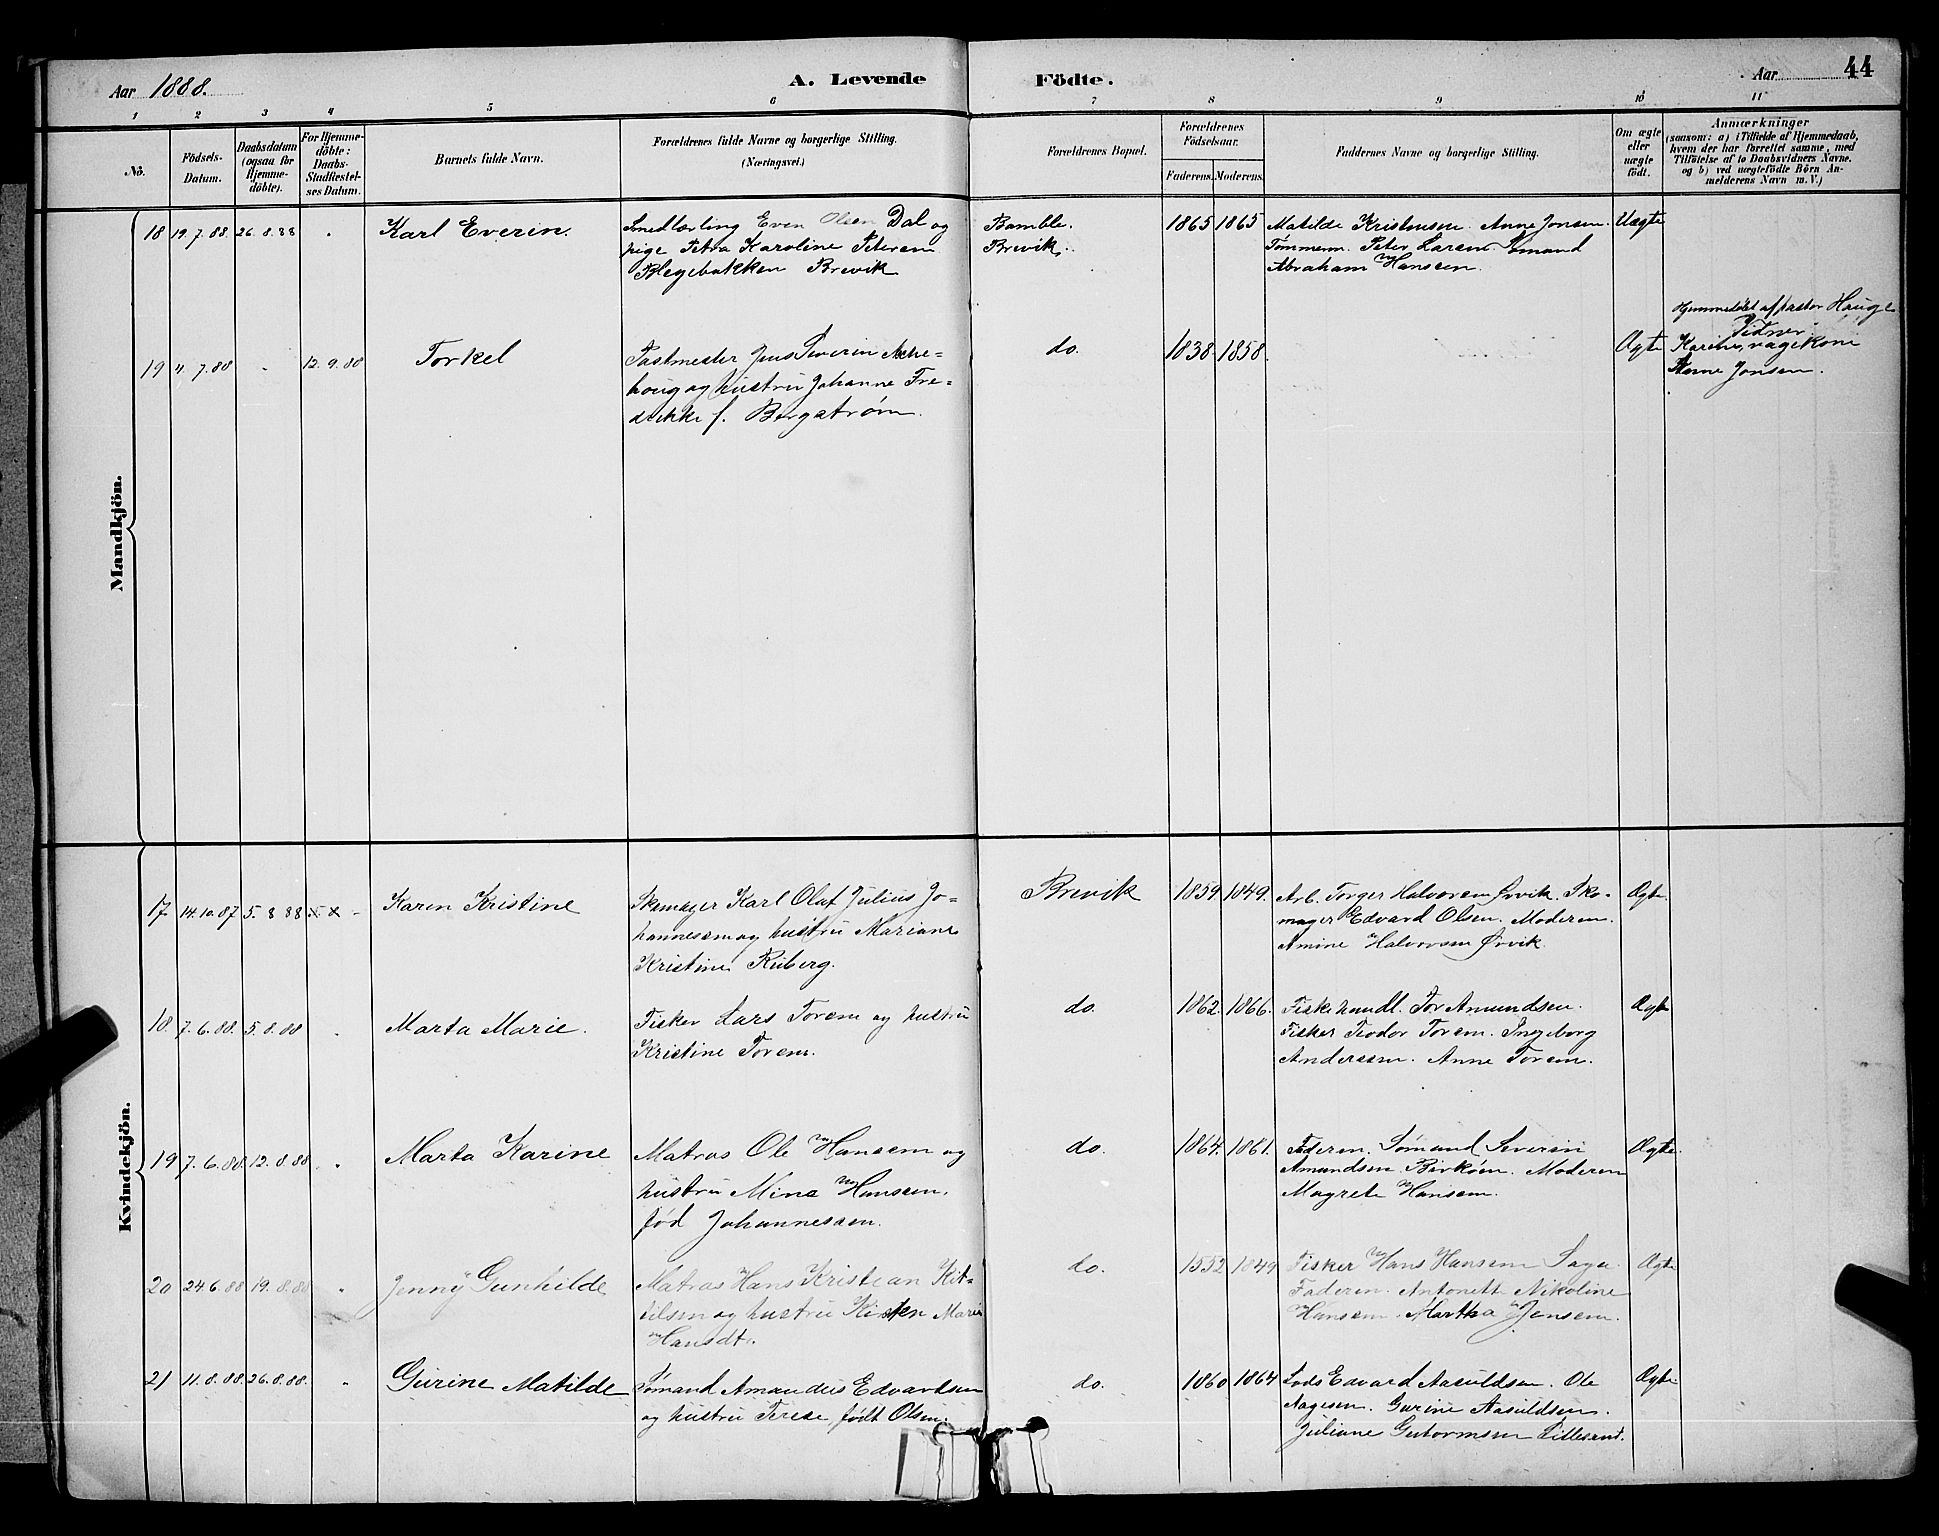 Aar 1888.
A. Levende Födte.
Aar 44
1 2 3 4 5 6 7 8 9 10 11
No.
Födsels-Datum.
Daabsdatum (ogsaa for Hjemmedöbte).
For Hjemmedöbte: Daabs-Stadfæstelses Datum.
Barnets fulde Navn.
Forældrenes fulde Navne og borgerlige Stilling. (Næringsvei.)
Forældrenes Bopæl.
Forældrenes Födselsaar.
Faderens. Moderens.
Faddernes Navne og borgerlige Stilling.
Om ægte eller uægte födt.
Anmærkninger
(saasom: a) i Tilfælde af Hjemmedaab,
hvem der har forrettet samme, med
Tilföielse af to Daabsvidners Navne.
og b) ved uægtefödte Börn An-
melderens Navn m. V.)
Mandkjön.
18 19.7.88. 26.8.88 Karl Everin. Smedlærling Even Olsen Dal og Bamble. 1865 1865 Matilde Kristensen. Anne Jonsen. Uægte
pige Petra Karoline Petersen Brevik. Tømmerm. Peter Larsen. Sømand
Blegebakken Brevik Abraham Hansen.
Hjemmedøbt af pastor Hauge
Vidner:
19 4.7.88 12.9.88 Torkel Postmester Jens Severin do. 1838 1858. Ægte
houg og hustru Johanne Fre=
drikke f. Bergstrøm.
Jonsen.
Kvindekjön.
17 14.10.87 5.8.88 Karen Kristine Skomager Karl Olaf Julius Jo= Brevik 1859 1849. Arb. Torger Halvorsen Ørvik. Sko- Ægte
hannessen og hustru Mariane mager Edvard Olsen. Moderen.
Kristine Riiberg. Amine Halvorsen Ørvik.
18 7.6.88. 5.8.88 Marta Marie. Fisker Lars Toresen og hustru do. 1862. 1866. Fiskehandl. Tor Amundsen. Ægte
Kristine Toresen. Fisker Teodor Toresen. Ingeborg
Anderssen. Anne Toresen.
19 7.6.88. 12.8.88 Marta Karine Matros Ole Hansen og do. 1864. 1861. Faderen. Sømand Severin Ægte.
hustru Mine Hansen. Amundsen Birkøen. Moderen
fød Johannessen. Magrete Hansen.
20 24.6.88 19.8.88 Jenny Gunhilde Matros Hans Kristian Kit= do. 1552 1849 Fisker Hans Hansen Ægte
tilsen og hustru Kirsten Marie Faderen. Antonette Nikoline
Hansdt. Hansen. Martha Jensen.
21 11.8.88. 26.8.88. Gurine Matilde Sømand Amandus Edvardsen do. 1860 1864 Lods Edvard Aasuldsen. Ole Ægte
og hustru Terese født Olsen. Aagesen. Gurine Aasuldsen.
Juliane Gutormsen Lillesand.